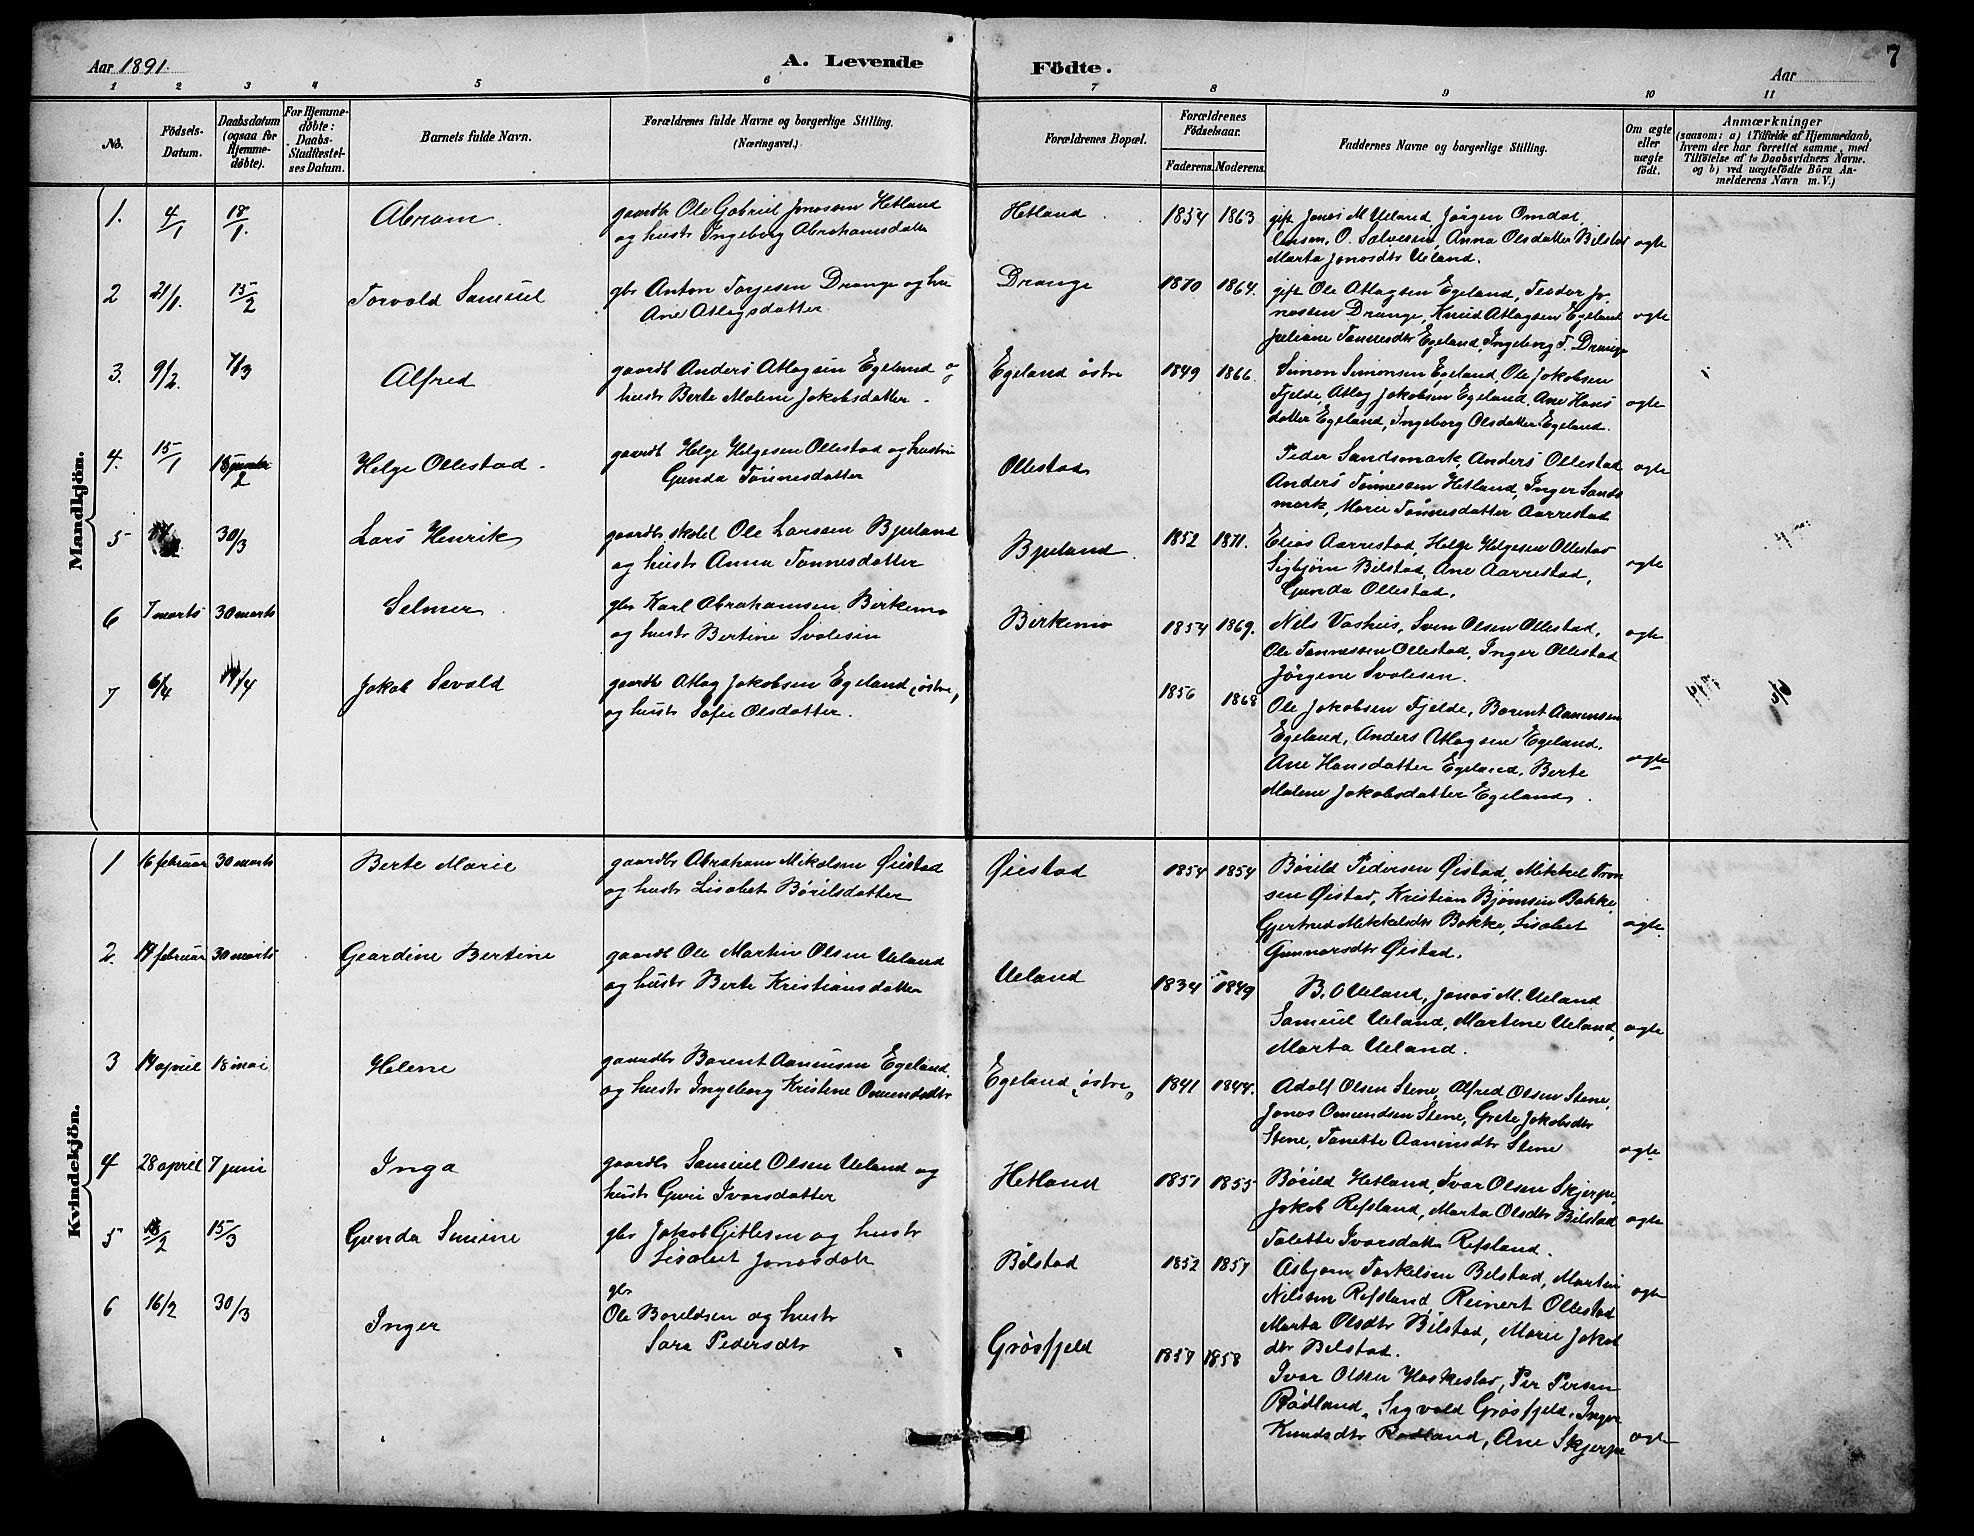 Aar 1891. A. Levende Födte. Aar 7
1 2 3 4 5 6 7 8 9 10 11
No. Födsels-Datum. Daabsdatum (ogsaa for Hjemme-döbte). For Hjemme-döbte: Daabs-Stadfæstel-ses Datum. Barnets fulde Navn. Forældrenes fulde Navne og borgerlige Stilling. (Næringsvei.) Forældrenes Bopæl. Forældrenes Födselsaar. Faderens. Moderens. Faddernes Navne og borgerlige Stilling. Om ægte eller uægte födt. Anmærkninger (saasom: a) i Tilfælde af Hjemmedaab, hvem der har forrettet samme, med Tilföielse af to Daabsvidners Navne. og b) ved uægtefödte Börn An-melderens Navn m. V.)
Mandkjön.
1. 4/1 18/1. Abram. gaardb Ole Gabriel Jonassen Hetland Hetland. 1854 1863 gift Jonas M Ueland Jörgen Omdal,
og hustr Ingeborg Abrahamsdatter O. Salvesen, Anna Olsdatter Bilstad ægte
Marta Jonasdtr Ueland.
2 21/1. 15/2 Torvald Samuel gbr Anton Torjesen Drange og hu Drange 1870 1864. gift Ole Atlagsen Egeland, Teodor Jo-
Ane Atlagsdatter nassen Drange, Knud Atlagsen Egeland ægte
Juliane Tønnesdtr Egeland, Ingeborg T. Drange
3. 9/2. 7/3 Alfred gaardb Anders Atlagsen Egeland og Egeland östre 1849 1866. Simon Simonsen Egeland, Ole Jakobsen
hustr Berte Malene Jakobsdatter. Fjelde, Atlag Jakobsen Egeland, Ane Hans
datter Egeland, Ingeborg Olsdatter Egeland. ægte
4. 15/1 Helge Ollestad. gaardb Helge Helgesen Ollestad og hustru Ollestad Peder Sandsmark, Anders Ollestad ægte
Gunda Tönnesdatter Anders Tönnessen Hetland, Inger Sands
mark, Marie Tönnesdatter Aarrestad
5 30/3 Lars Henrik gaardbr skold Ole Larssen Bjeland Bjeland. 1852 1871. Elias Aarrestad, Helge Helgesen Ollestad
og hustr Anna Tönnesdatter Sigbjörn Bilstad, Ane Aarrestad, ægte
Gunda Ollestad.
6 7 marts 30 marts Selmer gbr Karl Abrahamsen Birkemo Birkemo 1854 1869. Nils Vashus, Sven Olsen Ollestad,
og hustr Bertine Svalesin Ole Tönnessen Ollestad, Inger Ollestad ægte
Jörgine Svalesen.
7 6/4 /4 Jakob Sevald gaardb Atlag Jakobsen Egeland, östre, 1856 1868 Ole Jakobsen Fjelde, Barent Aanensen
og hustr Sofie Olsdatter. Egeland, Anders Atlagsen Egeland,
Ane Hansdatter Egeland, Berte ægte
Malene Jakobsdatter Egeland.
Kvindekjön.
1 16 februar 30 marts Berte Marie gaardbr Abraham Mikalsen Øiestad Øiestad 1854 1854 Börild Pedersen Øistad, Mikkel Tron
og hustr Lisabet Börilsdatter sen Øistad, Kristian Bjørnsen Bakke,
Gjertrud Mikkelsdtr Bakke, Lisabet ægte
Gunnarsdtr Øistad.
2. 14 februar 30 marts Geardine Bertine gaardb Ole Martin Olsen Ueland Ueland 1834 1849 B. O Ueland, Jonas M. Ueland
og hustr Berte Kristiansdatter Samuel Ueland, Martine Ueland, ægte
Marta Ueland.
3 14 april 18 mai Helene gaardbr Barent Aanensen Egeland. Egeland „östre„ 1841 1844. Adolf Olsen Stene, Alfred Olsen Stene,
og hustr Ingeborg Kristine Omundsdtr Jonas Omundsen Stene, Grete Jakobsdtr
Stene, Tanette Aanensdtr Stene ægte
4 28 april 7 juni Inga gaardbr Samuel Olsen Ueland og Hetland 1851 1855 Börild Hetland, Ivar Olsen Skjerpe,
hustr Guri Ivarsdatter Jakob Refsland, Marta Olsdtr Bilstad ægte
Talette Ivarsdatter Refsland.
5 18/2 15/3 Gunda Semine gbr Jakob Gitlesen og hustr Bilstad 1852 1857 Asbjørn Torkelsen Bilstad, Martin
Lisabet Jonasdatr Nilssen Refsland, Reinert Ollestad ægte
Marta Olsdtr Bilstad, Marie Jakob
dtr Bilstad.
6 16/2 30/3 Inger gbr Ole Boreldsen og hustr Grösfjeld 1857 1858
Sara Pedersdtr Ivar Olsen Haskestad, Per Persen
Rødland, Sigvald Grösfjeld, Inger
Knudsdtr Rødland, Ane Skjerpe ægte